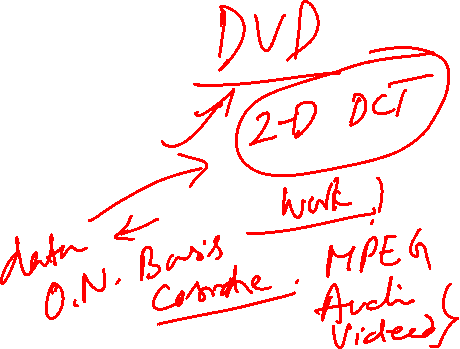 DVD
2-D DCT
Work
data
O.N. Basis
MPEG
Audi
Video